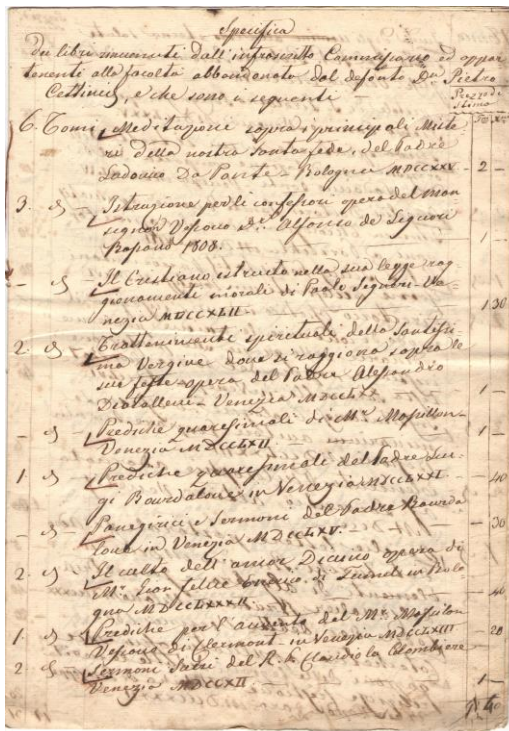 Specifica
Dei libri rinvenuti dall'infrascritto Commissario ed appar
tenenti alla facoltà abbandonata dal defonto Dn Pietro
Cettineo, e che sono i seguenti
Prezzo di
Stima
6. Tomi Meditazione sopra i principali Miste
ri della nostra Santa fede, del Padre
Ludovico Da Ponte - Bologna MDCCXXV - 2 -
3. d Istruzione per li confessori opera del Mon
signor Vescovo Alfonso de Liguori
Bassano 1808. 1 -
- d Il Cristiano istruito nella sua legge rag
gionamenti morali di Paolo Signori - Ve
nezia MDCCXLII 1 30
2. d Trattenimenti spirituali della Santissi
ma Vergine dove si raggiona sopra le
sue feste opera del Padre Alessandro
Diotallevi - Venezia 1 -
- d Prediche quaresimali di Mr Massillon -
Venezia MDCCLXII 1 -
1. d Prediche quaresimali del Padre Lui-
gi Bourdaloue in Venezia MDCCLXXI - 40
- d Panegirici e Sermoni del Padre Bourda
loue in Venezia MDCCLXV. - 30
2. d Il calto dell'amor Divino opera di
Mr Gian Felice in Bolo
gna - 40
1. d Prediche per l'avvento del Mr Massilon
Vescovo di Clermont in Venezia MDCCLXIII - 20
2 d Sermoni Sacri del R. P. Claudio la Colombiere
Venezia MDCCXII 1 -